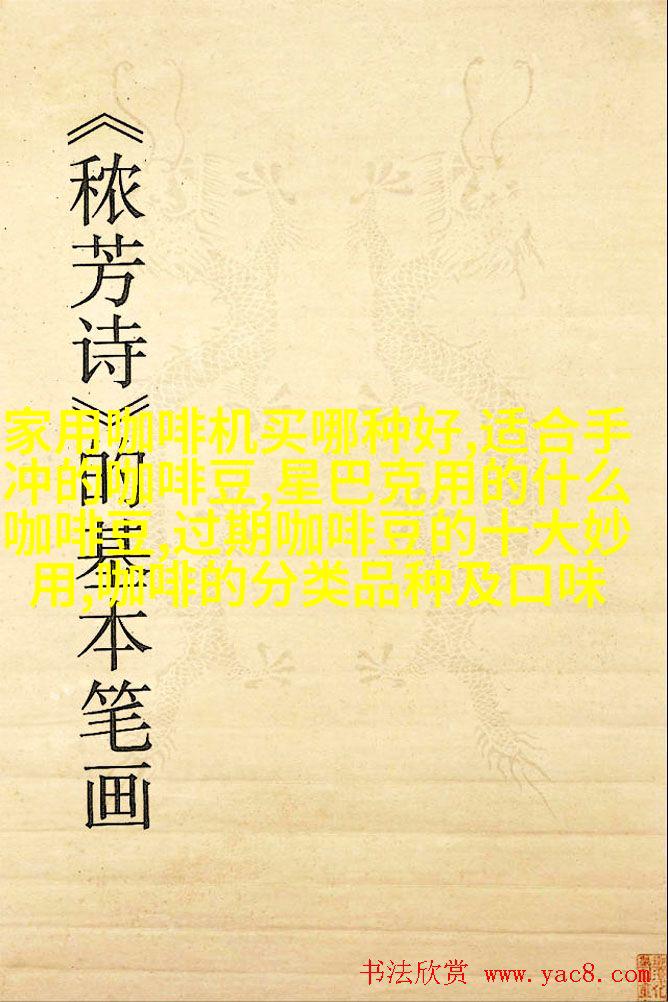 《秾芳诗》的基本笔画
家用咖啡机买哪种好,适合手
冲的咖啡豆,星巴克用的什么
咖啡豆,过期咖啡豆的十大妙
用,咖啡的分类品种及口味
书法欣赏 www.yac8.com